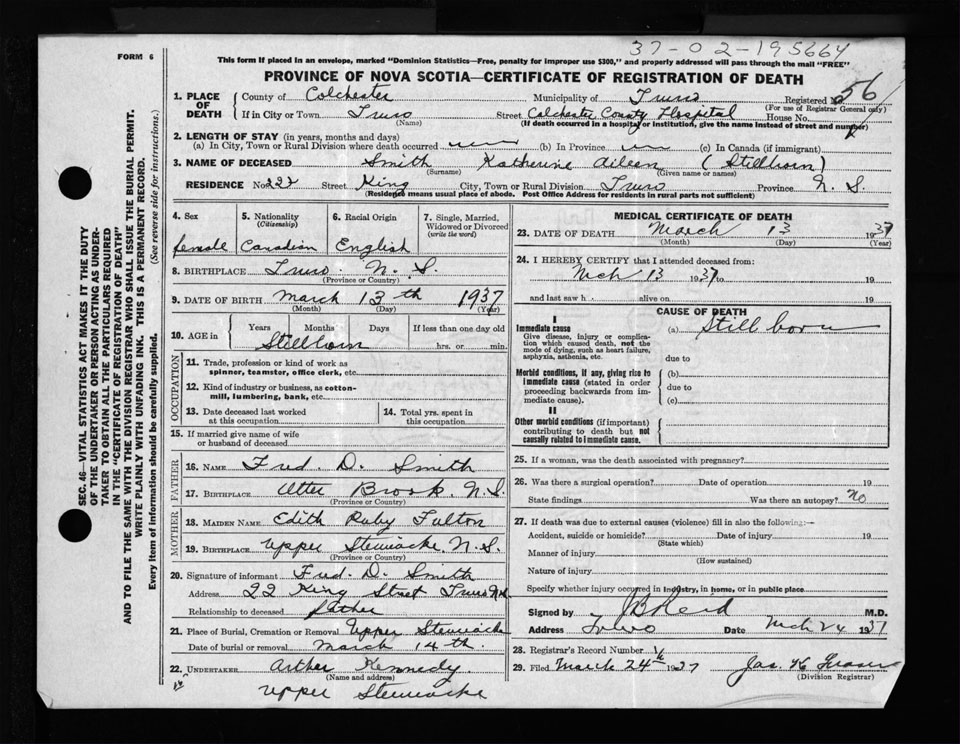 37-02-195664
FORM 6
This form if placed in an envelope, marked "Dominion Statistics—Free, penalty for improper use $300," and properly addressed will pass through the mail "FREE"
PROVINCE OF NOVA SCOTIA—CERTIFICATE OF REGISTRATION OF DEATH
1. PLACE OF DEATH County of Colchester Municipality of Truro Registered No. 56
(For use of Registrar General only)
If in City or Town Truro Street Colchester County Hospital House No.
(Name) (If death occurred in a hospital or institution, give the name instead of street and number)
2. LENGTH OF STAY (in years, months and days)
(a) In City, Town or Rural Division where death occurred (b) In Province (c) In Canada (if immigrant)
3. NAME OF DECEASED Smith Katherine Aileen (Stillborn)
(Surname) (Given name or names)
RESIDENCE No. 222 Street King City, Town or Rural Division Truro Province N. S.
(Residence means usual place of abode. Post Office Address for residents in rural parts not sufficient)
4. Sex 5. Nationality (Citizenship) 6. Racial Origin 7. Single, Married, Widowed or Divorced (write the word)
female Canadian English
8. BIRTHPLACE Truro. N. S.
(Province or Country)
9. DATE OF BIRTH March 13th 1937
(Month) (Day) (Year)
10. AGE in Years Months Days If less than one day old
Stillborn hrs. or min.
OCCUPATION
11. Trade, profession or kind of work as spinner, teamster, office clerk, etc.
12. Kind of industry or business, as cotton-mill, lumbering, bank, etc.
13. Date deceased last worked at this occupation 14. Total yrs. spent in this occupation
15. If married give name of wife or husband of deceased
FATHER
16. NAME Fred. D. Smith
17. BIRTHPLACE Otter Brook, N.S.
(Province or Country)
MOTHER
18. MAIDEN NAME Edith Ruby Fulton
19. BIRTHPLACE Upper Stewiacke, N. S.
(Province or Country)
20. Signature of informant Fred. D. Smith
Address 22 King Street Truro N.S.
Relationship to deceased father
21. Place of Burial, Cremation or Removal Upper Stewiacke
Date of burial or removal March 14th.
22. UNDERTAKER Arther Kennedy
(Name and address)
Upper Stewiacke
MEDICAL CERTIFICATE OF DEATH
23. DATE OF DEATH March 13 1937
(Month) (Day) (Year)
24. I HEREBY CERTIFY that I attended deceased from:
Mch 13 1937 to 19
and last saw h alive on 19
CAUSE OF DEATH
I
Immediate cause (a) Still born
Give disease, injury or complication which caused death, not the mode of dying, such as heart failure, asphyxia, asthenia, etc.
due to
Morbid conditions, if any, giving rise to immediate cause (stated in order proceeding backwards from immediate cause).
(b)
due to
(c)
II
Other morbid conditions (if important) contributing to death but not causally related to immediate cause.
25. If a woman, was the death associated with pregnancy?
26. Was there a surgical operation? Date of operation 19
State findings Was there an autopsy? No
27. If death was due to external causes (violence) fill in also the following:—
Accident, suicide or homicide? Date of injury 19
(State which)
Manner of injury
(How sustained)
Nature of injury
Specify whether injury occurred in industry, in home, or in public place
Signed by Reid M.D.
Address Truro Date Mch 24 1937
28. Registrar's Record Number
29. Filed March 24th 1937 Jas. H. Fraser
(Division Registrar)
SEC. 46—VITAL STATISTICS ACT MAKES IT THE DUTY
OF THE UNDERTAKER OR PERSON ACTING AS UNDER-
TAKER TO OBTAIN ALL THE PARTICULARS REQUIRED
IN THE "CERTIFICATE OF REGISTRATION OF DEATH"
AND TO FILE THE SAME WITH THE DIVISION REGISTRAR WHO SHALL ISSUE THE BURIAL PERMIT.
WRITE PLAINLY WITH UNFADING INK. THIS IS A PERMANENT RECORD.
Every item of information should be carefully supplied. (See reverse side for instructions.)